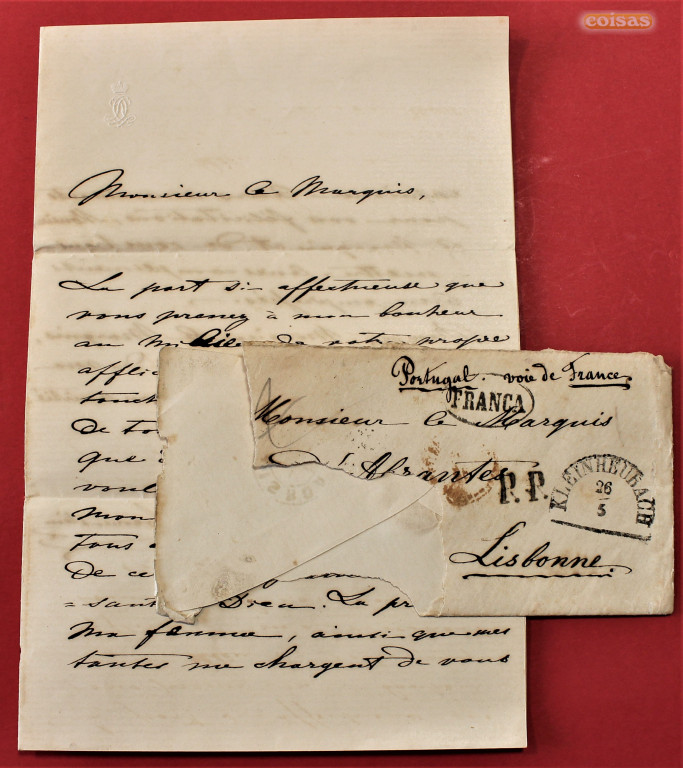 coisas
Monsieur le Marquis,
La part si affectueuse que
vous prenez à mon bonheur
au milieu de votre propre
afflic
touch
De to
que
voul
mon
tous
De ce
=sant Dieu. La pr
ma femme, ainsi que mes
tantes me chargent de vous
Portugal. voie de France.
FRANCA
Monsieur le Marquis
D'Abrantes
P.P.
KLEINHEUBACH
26
5
Lisbonne.